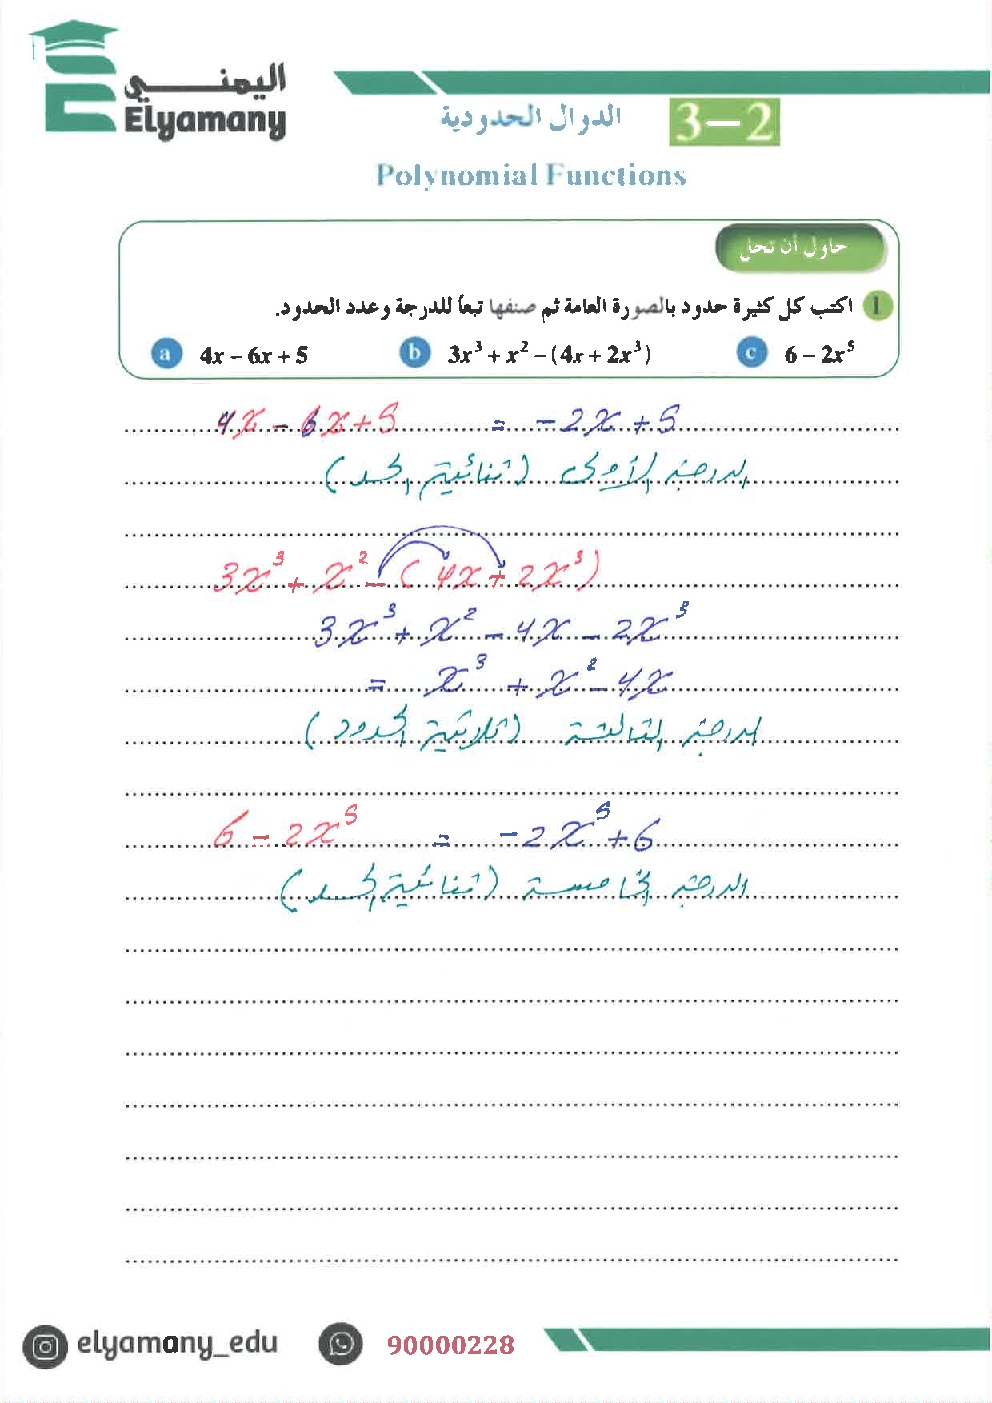 اليمني
Elyamany
3-2 الدوال الحدودية
Polynomial Functions
حاول أن تحل
1 اكتب كل كثيرة حدود بالصورة العامة ثم صنفها تبعًا للدرجة وعدد الحدود.
a 4x − 6x + 5 b 3x³ + x² − (4x + 2x³) c 6 − 2x⁵
4x − 6x + 5 = −2x + 5
الدرجة الأولى (ثنائية الحد)
3x³ + x² − (4x + 2x³)
3x³ + x² − 4x − 2x³
= x³ + x² − 4x
الدرجة الثالثة (ثلاثية الحدود)
6 − 2x⁵ = −2x⁵ + 6
الدرجة الخامسة (ثنائية الحد)
elyamany_edu 90000228